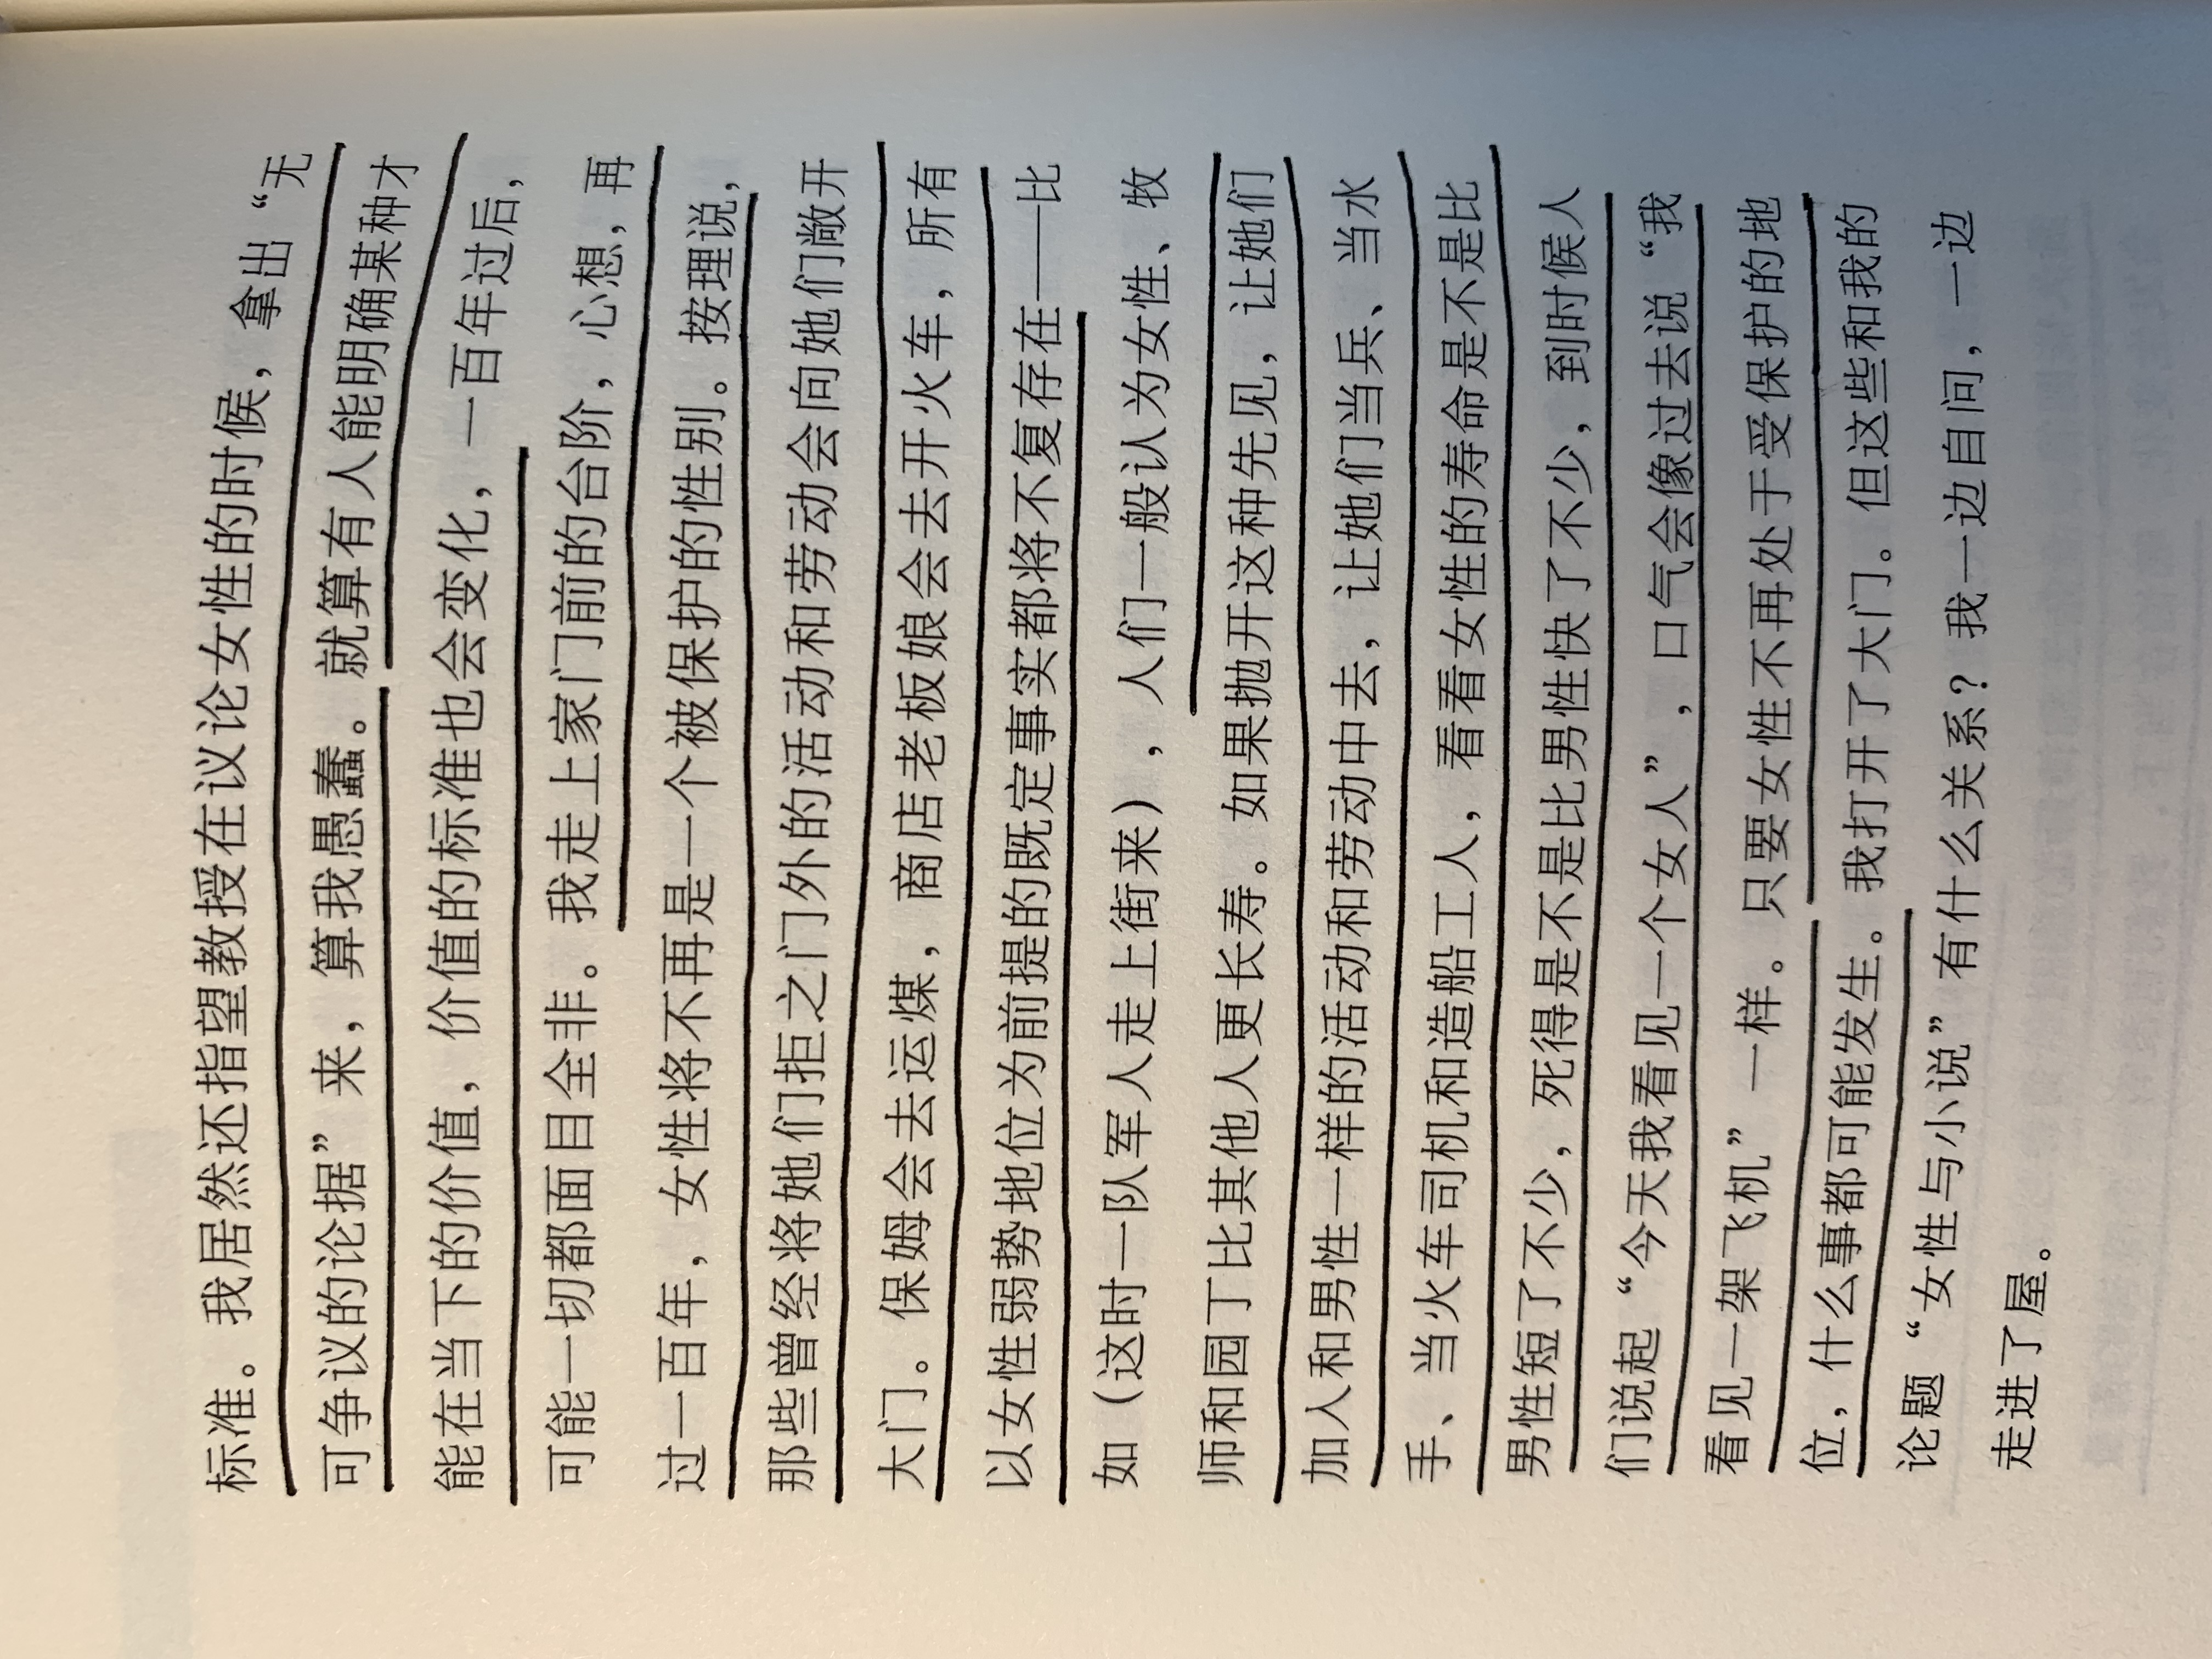 标准。我居然还指望教授在议论女性的时候，拿出“无
可争议的论据”来，算我愚蠢。就算有人能明确某种才
能在当下的价值，价值的标准也会变化，一百年过后，
可能一切都面目全非。我走上家门前的台阶，心想，再
过一百年，女性将不再是一个被保护的性别。按理说，
那些曾经将她们拒之门外的活动和劳动会向她们敞开
大门。保姆会去运煤，商店老板娘会去开火车，所有
以女性弱势地位为前提的既定事实都将不复存在——比
如（这时一队军人走上街来），人们一般认为女性、牧
师和园丁比其他人更长寿。如果抛开这种先见，让她们
加入和男性一样的活动和劳动中去，让她们当兵、当水
手、当火车司机和造船工人，看看女性的寿命是不是比
男性短了不少，死得是不是比男性快了不少，到时候人
们说起“今天我看见一个女人”，口气会像过去说“我
看见一架飞机”一样。只要女性不再处于受保护的地
位，什么事都可能发生。我打开了大门。但这些和我的
论题“女性与小说”有什么关系？我一边自问，一边
走进了屋。